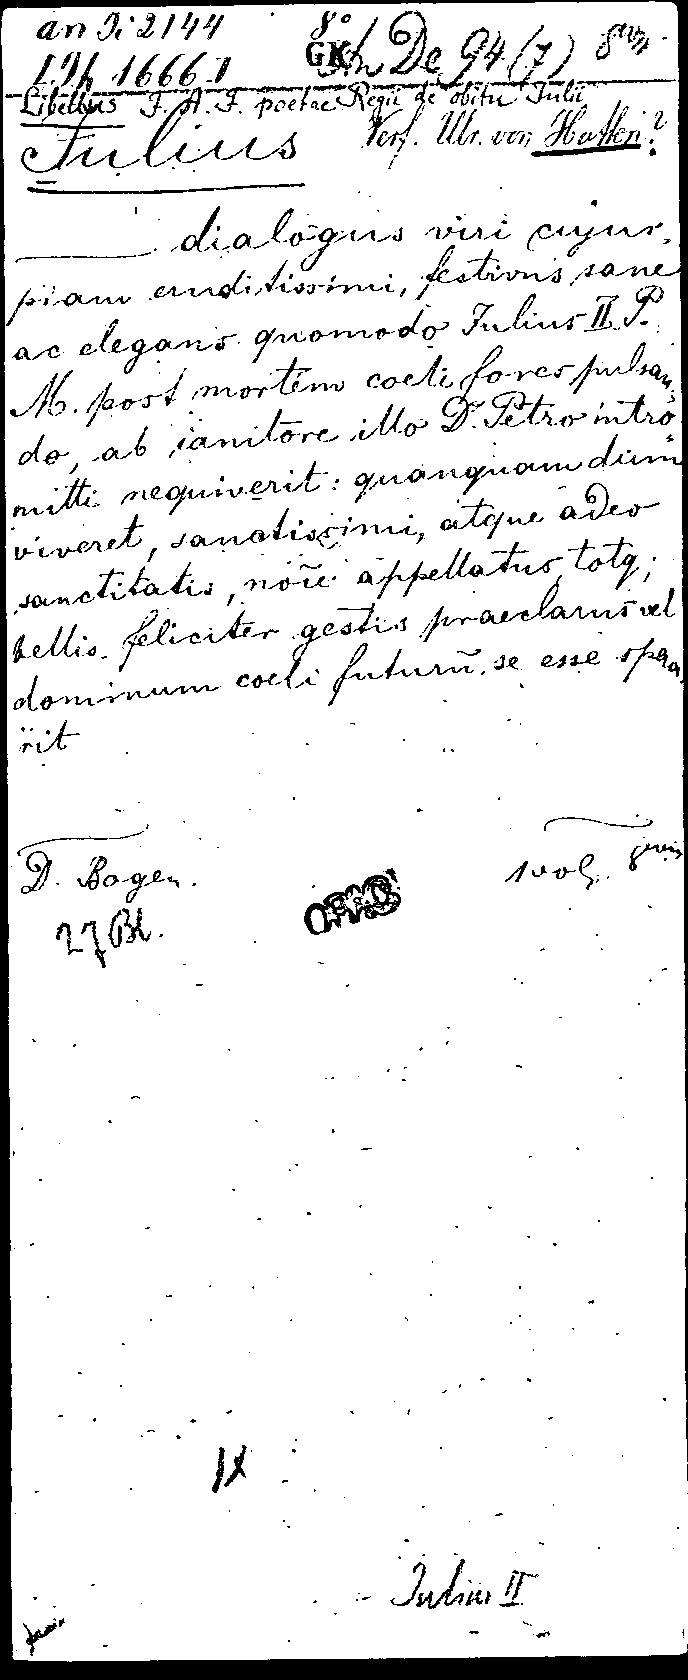 an Di 2144 8°
GK De 94 (7)
1.Th 1666 I
Libellus F. A. F. poetae Regii de obitu Julii
Julius Verf. Ulr. von Hutten?
dialogus viri cujus-
piam eruditissimi, festivus sane
ac elegans quomodo Julius II P.
M. post mortem coeli fores pulsan
do, ab ianitore illo D. Petro intro
mitti nequiverit: quanquam dum
viveret, sanctissimi, atque adeo
sanctitatis, nōie appellatus totq;
bellis feliciter gestis praeclarus vel
dominum coeli futurū se esse spera
rit
D. Bogen. 1 vol.
27 Bl.
Julius II